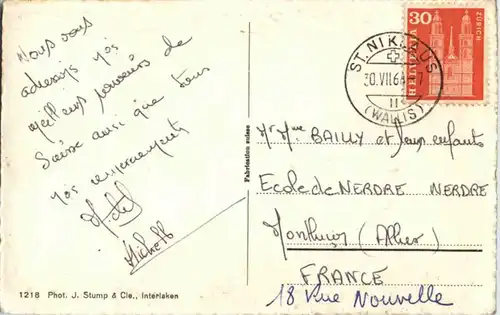 Nous vous
adressons nos
meilleurs souvenirs de
Suisse ainsi que tous
nos remerciements
Michel
Michelle
1218 Phot. J. Stump & Cie., Interlaken
Fabrication suisse
ST. NIKLAUS
30.VII.64
(WALLIS)
30
HELVETIA
ZÜRICH
Mr Mme BAILLY et leurs enfants
Ecole de NERDRE NERDRE
Montluçon (Allier)
FRANCE
18 Rue Nouvelle